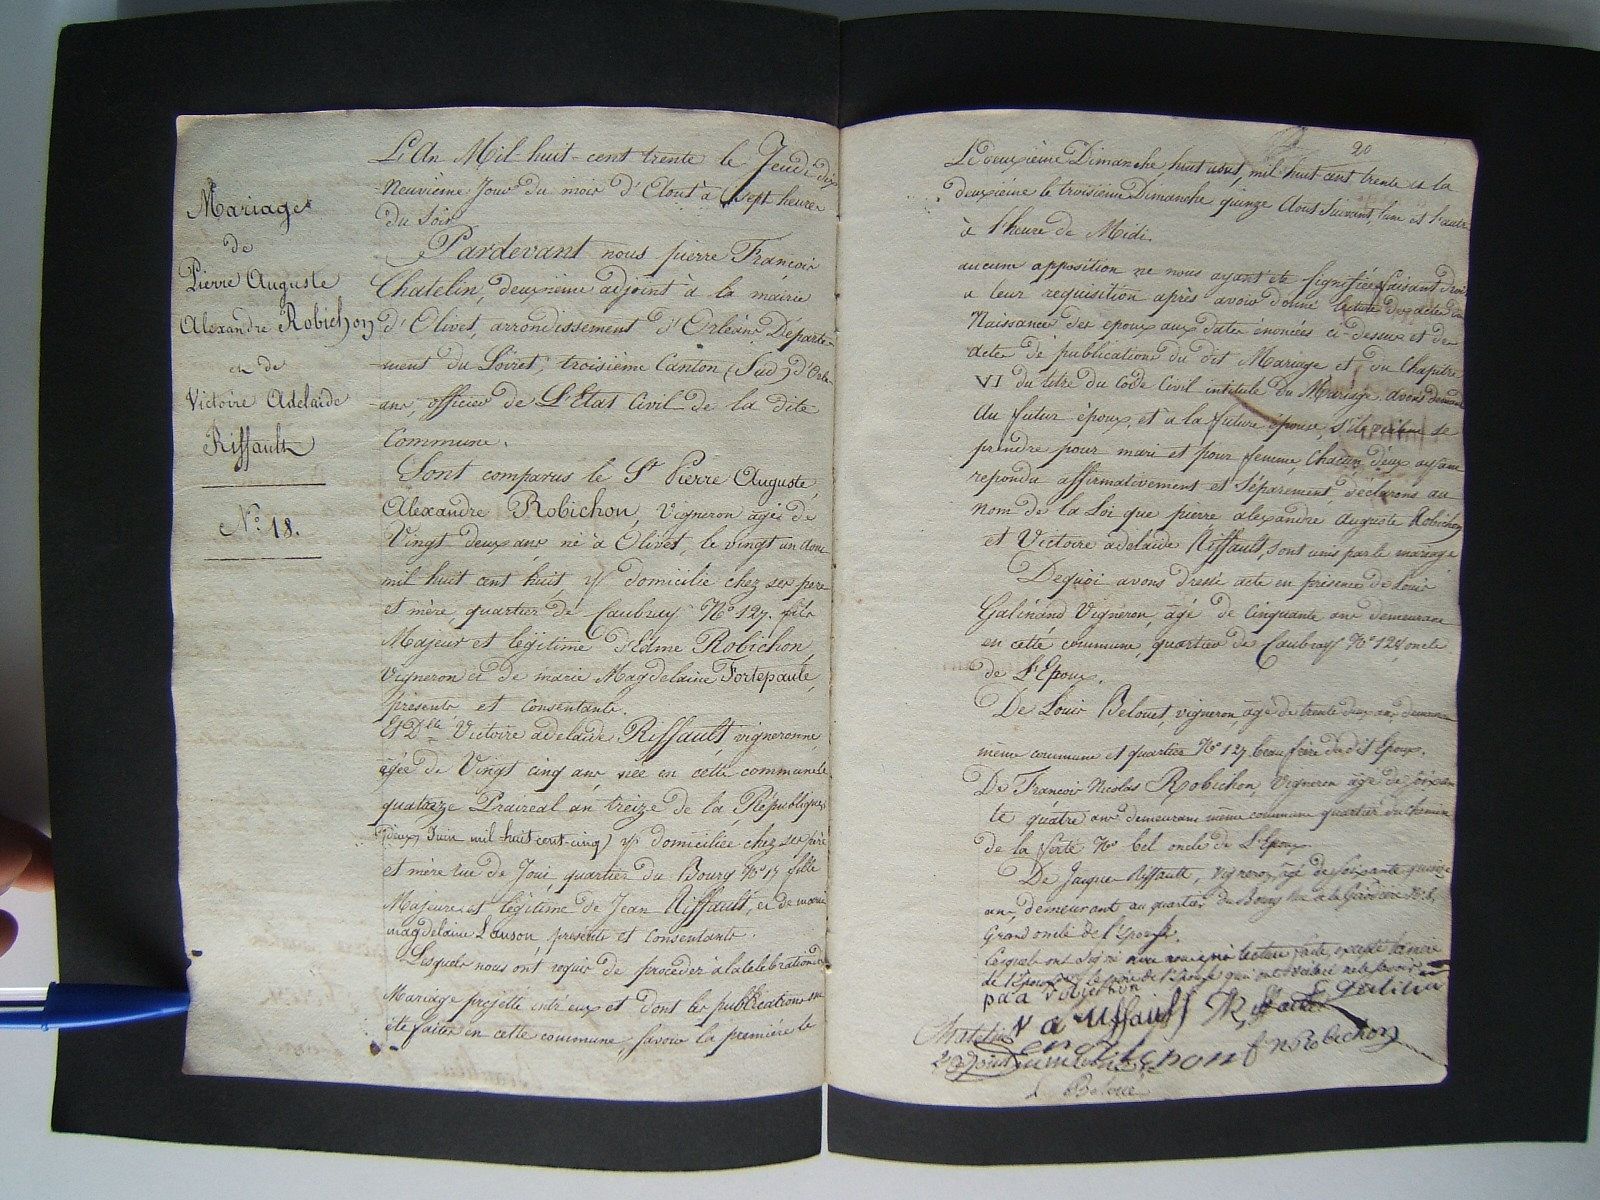 Mariage
de
Pierre Auguste
Alexandre Robichon
et de
Victoire Adelaide
Riffault
N.º 18.
L'An Mil huit-cent trente le Jeudi dix
Neuvième Jour du mois d'Aout à sept heures
du Soir
Pardevant nous pierre François
Chatelin, deuxième adjoint à la mairie
d'Olivet, arrondissement d'Orléans Départe-
-ment du Loiret, troisième Canton (Sud) d'Orle-
-ans, officier de L'Etat Civil de la dite
Commune.
Sont comparus le Sr Pierre Auguste
Alexandre Robichon, Vigneron agé de
Vingt deux ans né à Olivet, le vingt un Aout
mil huit cent huit, y domicilié chez ses pere
et mère, quartier de Caubray Nº 127. fils
Majeur et légitime d'Edme Robichon,
Vigneron et de marie Magdelaine Fortepaule,
présents et consentants.
Et Dlle Victoire adelaide Riffault vigneronne,
agée de Vingt cinq ans née en cette commune le
quatorze Praireal an treize de la République
(deux Juin mil huit cent-cinq) y domiciliée chez ses père
et mère rue de Joui, quartier du Bourg Nº 17 fille
Majeure et légitime de Jean Riffault, et de marie
magdelaine Lanson, présents et consentants.
Lesquels nous ont requis de procéder à la celebration du
Mariage projetté entr'eux et dont les publications ont
été faites en cette commune, savoir la première le
20
Le deuxième Dimanche, huit aout, mil huit cent trente et la
deuxième le troisième Dimanche quinze Aout suivant, l'une et l'autre
à l'heure de Midi.
aucune opposition ne nous ayant été signifiée, faisant droit
a leur requisition après avoir donné lecture des actes de
Naissances des epoux aux dates énoncées ci-dessus et des
actes de publications du dit Mariage et du Chapitre
VI du titre du Code Civil intitulé du Mariage avons demandé
Au futur époux, et à la future épouse, s'ils veulent se
prendre pour mari et pour femme, chacun d'eux ayant
repondu affirmativement et séparement, déclarons au
nom de la Loi que pierre alexandre auguste Robichon
et Victoire adelaide Riffault, sont unis par le mariage
De quoi avons dressé acte en présence de Louis
Galinand Vigneron, agé de cinquante ans demeurant
en cette commune, quartier de Caubray Nº 124, oncle
de L'Epoux.
De Louis Belouet vigneron, agé de trente deux ans demeurant
même commune et quartier Nº 127 beau frère du dit Epoux.
De François Nicolas Robichon, Vigneron agé de soixan
te quatre ans demeurant même commune quartier du chemin
de la ferté Nº bel oncle de L'Epoux.
De Jacques Riffault, Vigneron, agé de soixante quinze
ans, demeurant au quartier du Bourg Nº 8,
Grand oncle de l'Epouse.
Lesquels ont signé avec nous après lecture faite, excepté la mère
de l'Epoux et la mère de l'Epouse qui ont déclaré ne le savoir
paa robichon
V a riffault J Riffault L galinan
Chatelin
f n Robichon
L Beloué